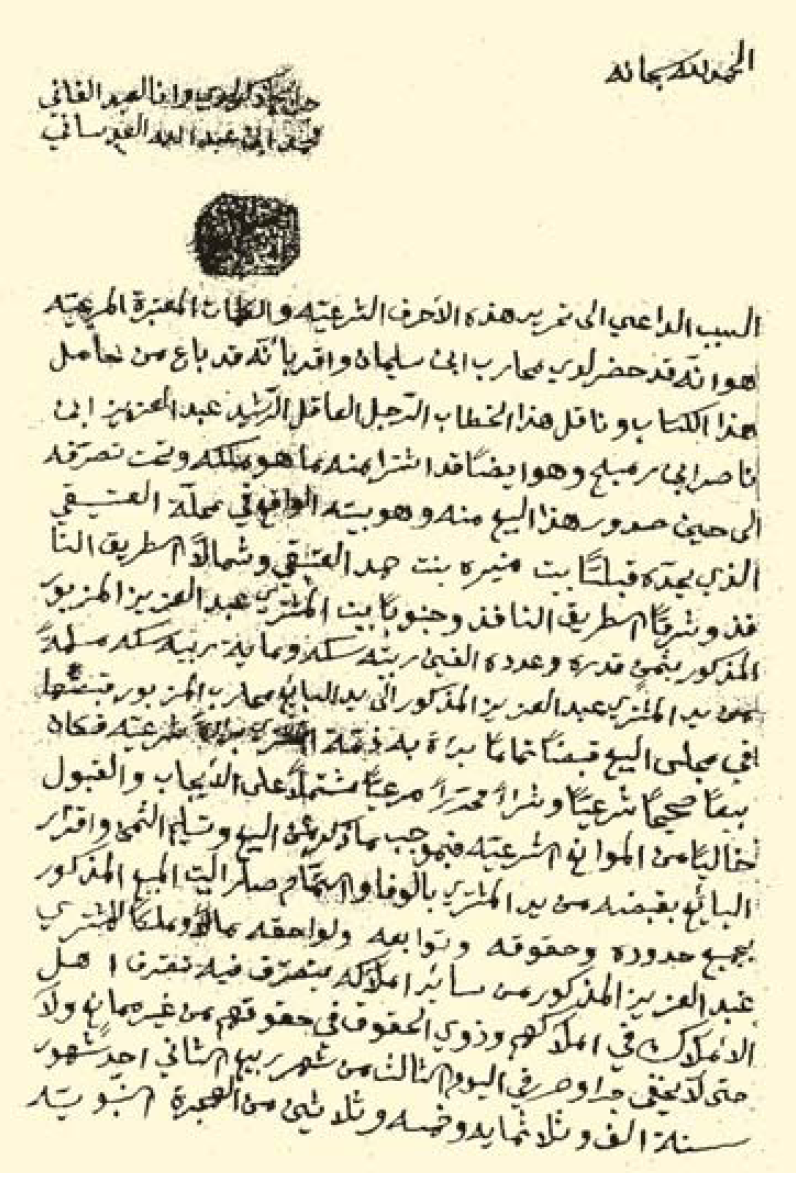 الحمد لله سبحانه
جرى ما ذكر لدي وانا العبد الفاني
محمد ابن عبد الله العدساني
السبب الداعي الى تحرير هذه الاحرف الشرعيه والكلمات المعتبرة المرعيته
هو انه قد حضر لدي محارب ابن سليمان واقر بأنه قد باع من حامل
هذا الكتاب وناقل هذا الخطاب الرجل العاقل الرشيد عبد العزيز ابن
ناصر ابن رميلح وهو ايضًا قد اشترا منه ما هو ملكه وتحت تصرفه
الى حين صدور هذا البيع منه وهو بيته الواقع في محلة العتيقي
الذي يحده قبلتًا بيت منيره بنت حمد العتيقي وشمالًا الطريق النا
فذ وشرقًا الطريق النافذ وجنوبًا بيت المشتري عبد العزيز المزبور
المذكور بثمن قدره وعدده الفين ربيّه سكه وماية ربيه سكه مسلمةً
من يد المشتري عبد العزيز المذكور الى يد البائع محارب المزبور قبضها
في مجلس البيع قبضًا تمامًا برأة به ذمة المشتري برأة شرعيه فكان
بيعًا صحيحًا شرعيًا وشراءً محررًا مرعيًا مشتملًا على الايجاب والقبول
خاليًا من الموانع الشرعيه فبموجب ما ذكر من البيع وتسليم الثمن واقرار
البائع بقبضه من يد المشتري بالوفا والتمام صار البيت المبيع المذكور
بجميع حدوده وحقوقه وتوابعه ولواحقه مالًا وملكًا للمشتري
عبد العزيز المذكور من سائر املاكه يتصرف فيه تصرف اهل
الاملاك في املاكهم وذوي الحقوق في حقوقهم من غير ممانع ولا
حتى لا يخفى جرا وحرر في اليوم الثالث من شهر ربيع الثاني احد شهور
سنة الف وثلاثمايه وخمسه وثلاثين من الهجرة النبويته